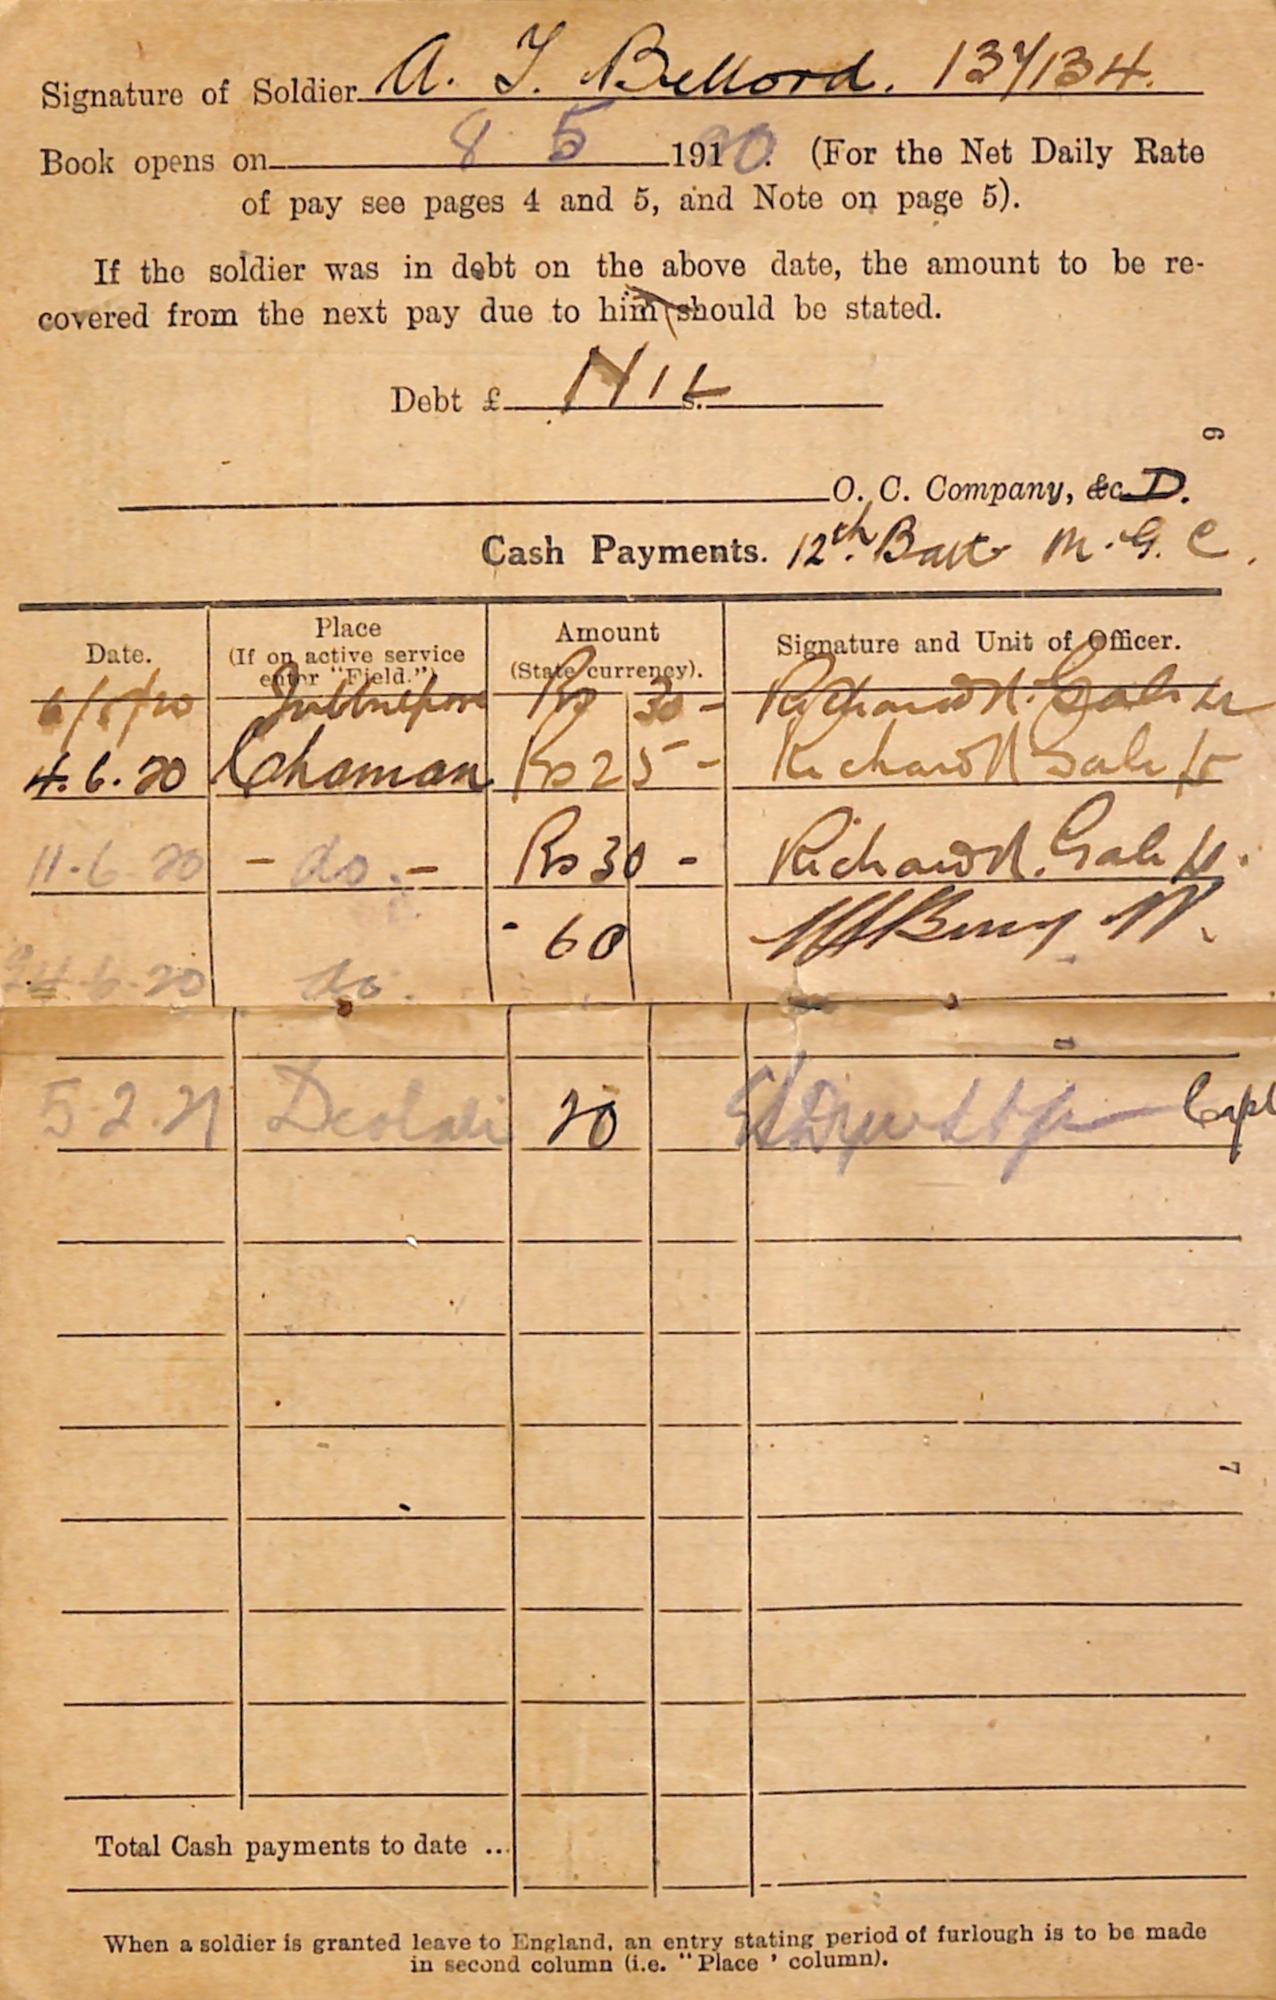 Signature of Soldier A. J. Bellord. 137134.
Book opens on 8 5 1910. (For the Net Daily Rate
of pay see pages 4 and 5, and Note on page 5).
If the soldier was in debt on the above date, the amount to be re-
covered from the next pay due to him should be stated.
Debt £ NIL s.
6
O. C. Company, &c. D.
Cash Payments. 12th. Batt M. G. C.
Date. Place (If on active service enter "Field.") Amount (State currency). Signature and Unit of Officer.
6/5/20 Jubbulpore Rs 30 - Richard N. Gale Lt
4.6.20 Chaman Rs 25 - Richard N Gale Lt
11.6 20 - do. - Rs 30 - Richard N. Gale Lt.
24.6.20 do. 60
5.2.21 Deolali 20 Capt
7
Total Cash payments to date ...
When a soldier is granted leave to England, an entry stating period of furlough is to be made
in second column (i.e. "Place ' column).